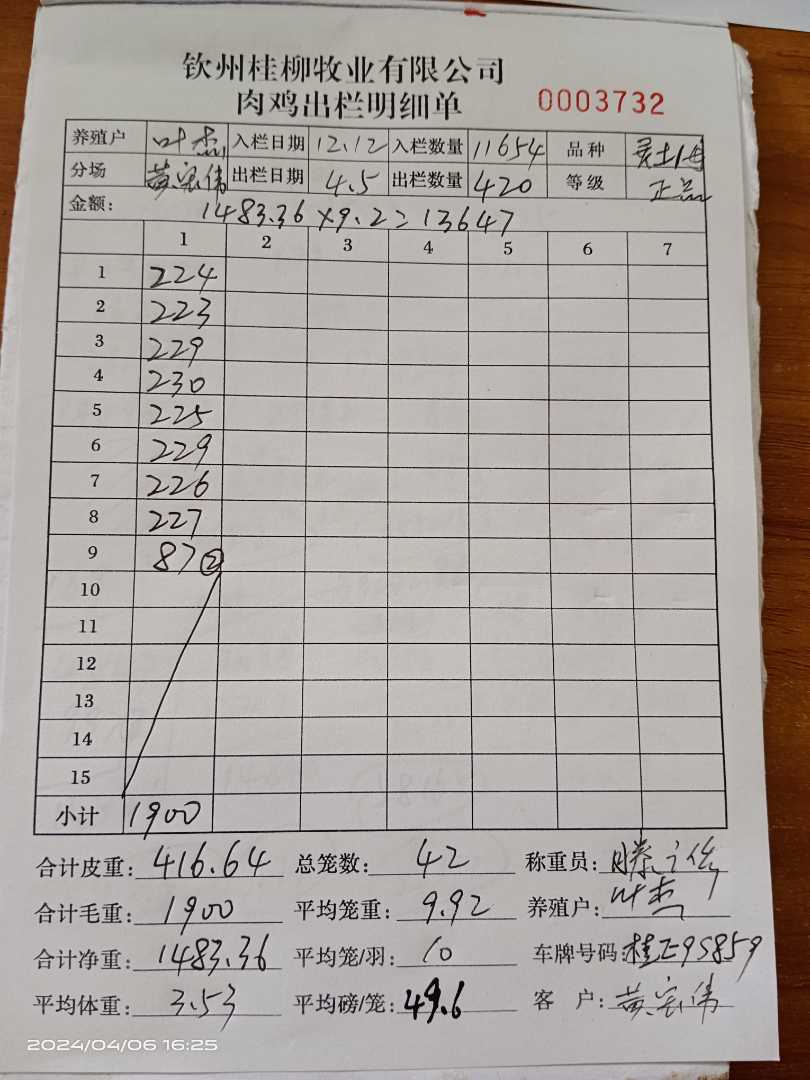 钦州桂柳牧业有限公司
肉鸡出栏明细单 0003732
养殖户 叶杰 入栏日期 12.12 入栏数量 11654 品种 灵土1母
分场 黄宏伟 出栏日期 4.5 出栏数量 420 等级 正品
金额: 1483.36×9.2=13647
1 2 3 4 5 6 7
1 224
2 223
3 229
4 230
5 225
6 229
7 226
8 227
9 87②
10
11
12
13
14
15
小计 1900
合计皮重: 416.64 总笼数: 42 称重员:
合计毛重: 1900 平均笼重: 9.92 养殖户: 叶杰
合计净重: 1483.36 平均笼/羽: 10 车牌号码: 桂E95859
平均体重: 3.53 平均磅/笼: 49.6 客户: 黄宏伟
2024/04/06 16:25